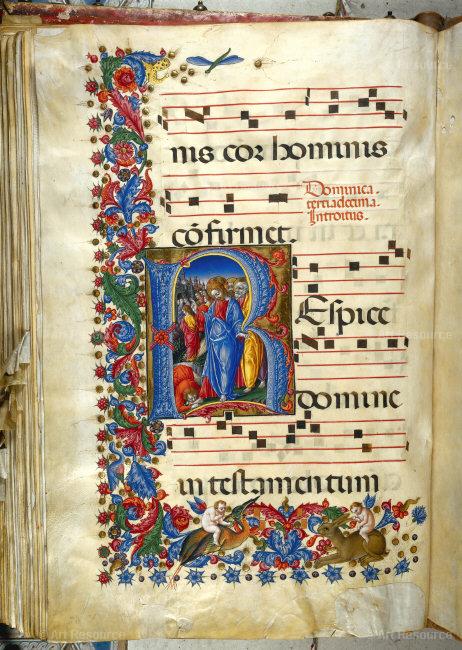 nis cor hominis
Dominica.
terriadecima.
Introitus.
cōfirmet.
REspice
domine
in testamentum
Art Resource
Art Resource